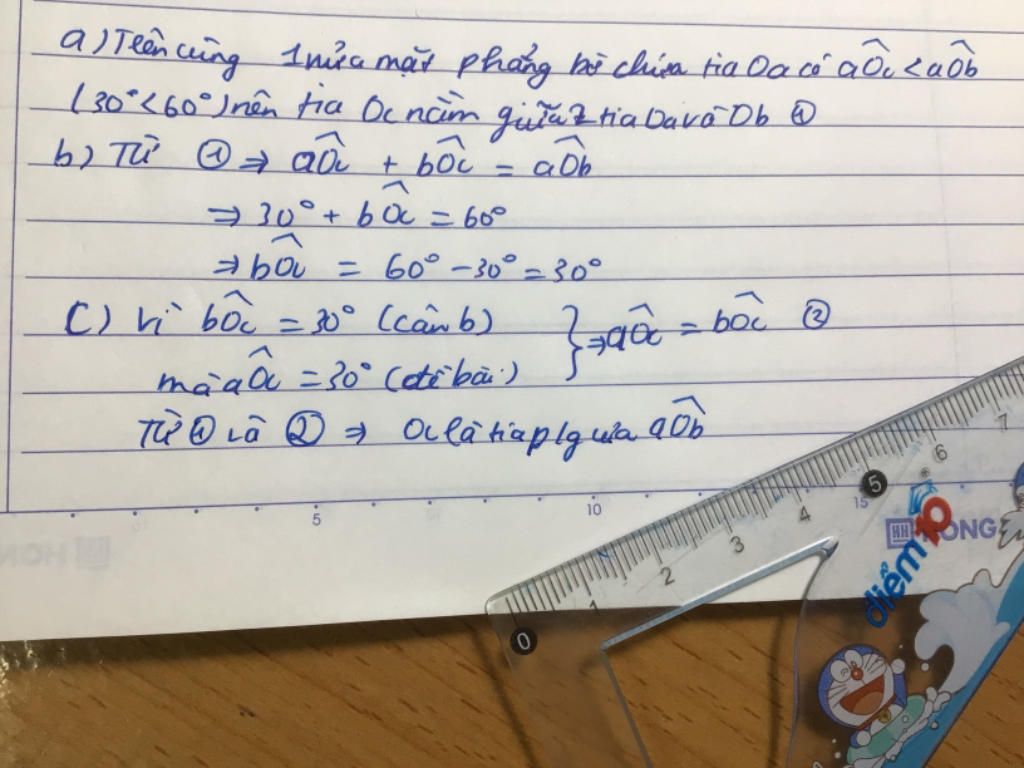 a) Trên cùng 1 nửa mặt phẳng bờ chứa tia Oa có aÔc < aÔb
(30° < 60°) nên tia Oc nằm giữa 2 tia Oa và Ob ①
b) Từ ① ⇒ aÔc + bÔc = aÔb
⇒ 30° + bÔc = 60°
⇒ bÔc = 60° - 30° = 30°
C) Vì bÔc = 30° (câu b)
mà aÔc = 30° (đề bài)
} ⇒ aÔc = bÔc ②
Từ ① và ② ⇒ Oc là tia p/g của aÔb
5
10
15
HH HONG
HH HON
0 1 2 3 4 5 6 7
điểm 10